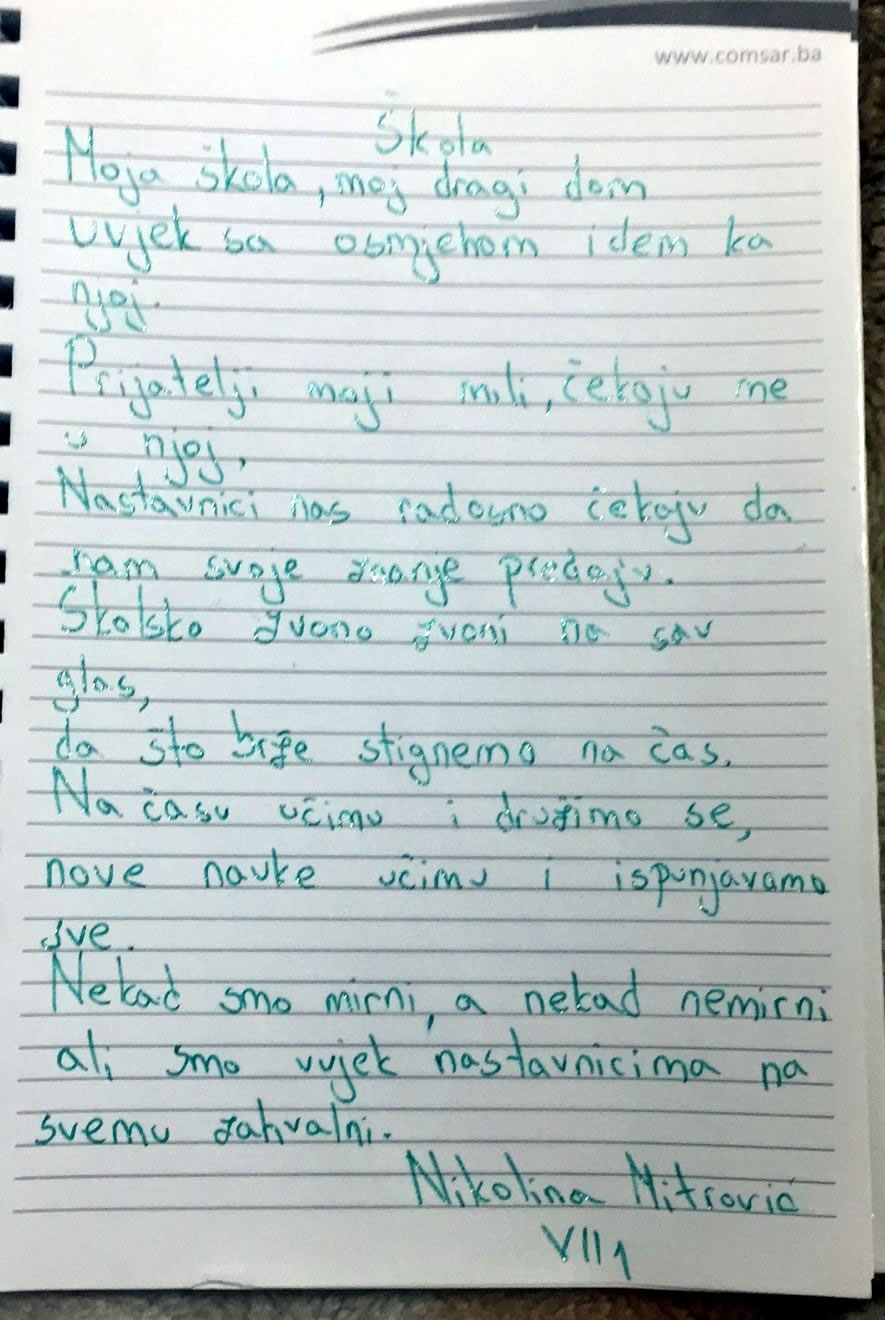 www.comsar.ba
Škola
Moja škola, moj dragi dom
uvjek sa osmjehom idem ka
njoj.
Prijatelji moji mili, čekaju me
u njoj,
Nastavnici nas radosno čekaju da
nam svoje znanje predaju.
Školsko zvono zvoni na sav
glas,
da što brže stignemo na čas.
Na času učimo i družimo se,
nove nauke učimo i ispunjavamo
sve.
Nekad smo mirni, a nekad nemirni
ali smo uvjek nastavnicima na
svemu zahvalni.
Nikolina Mitrović
VII1